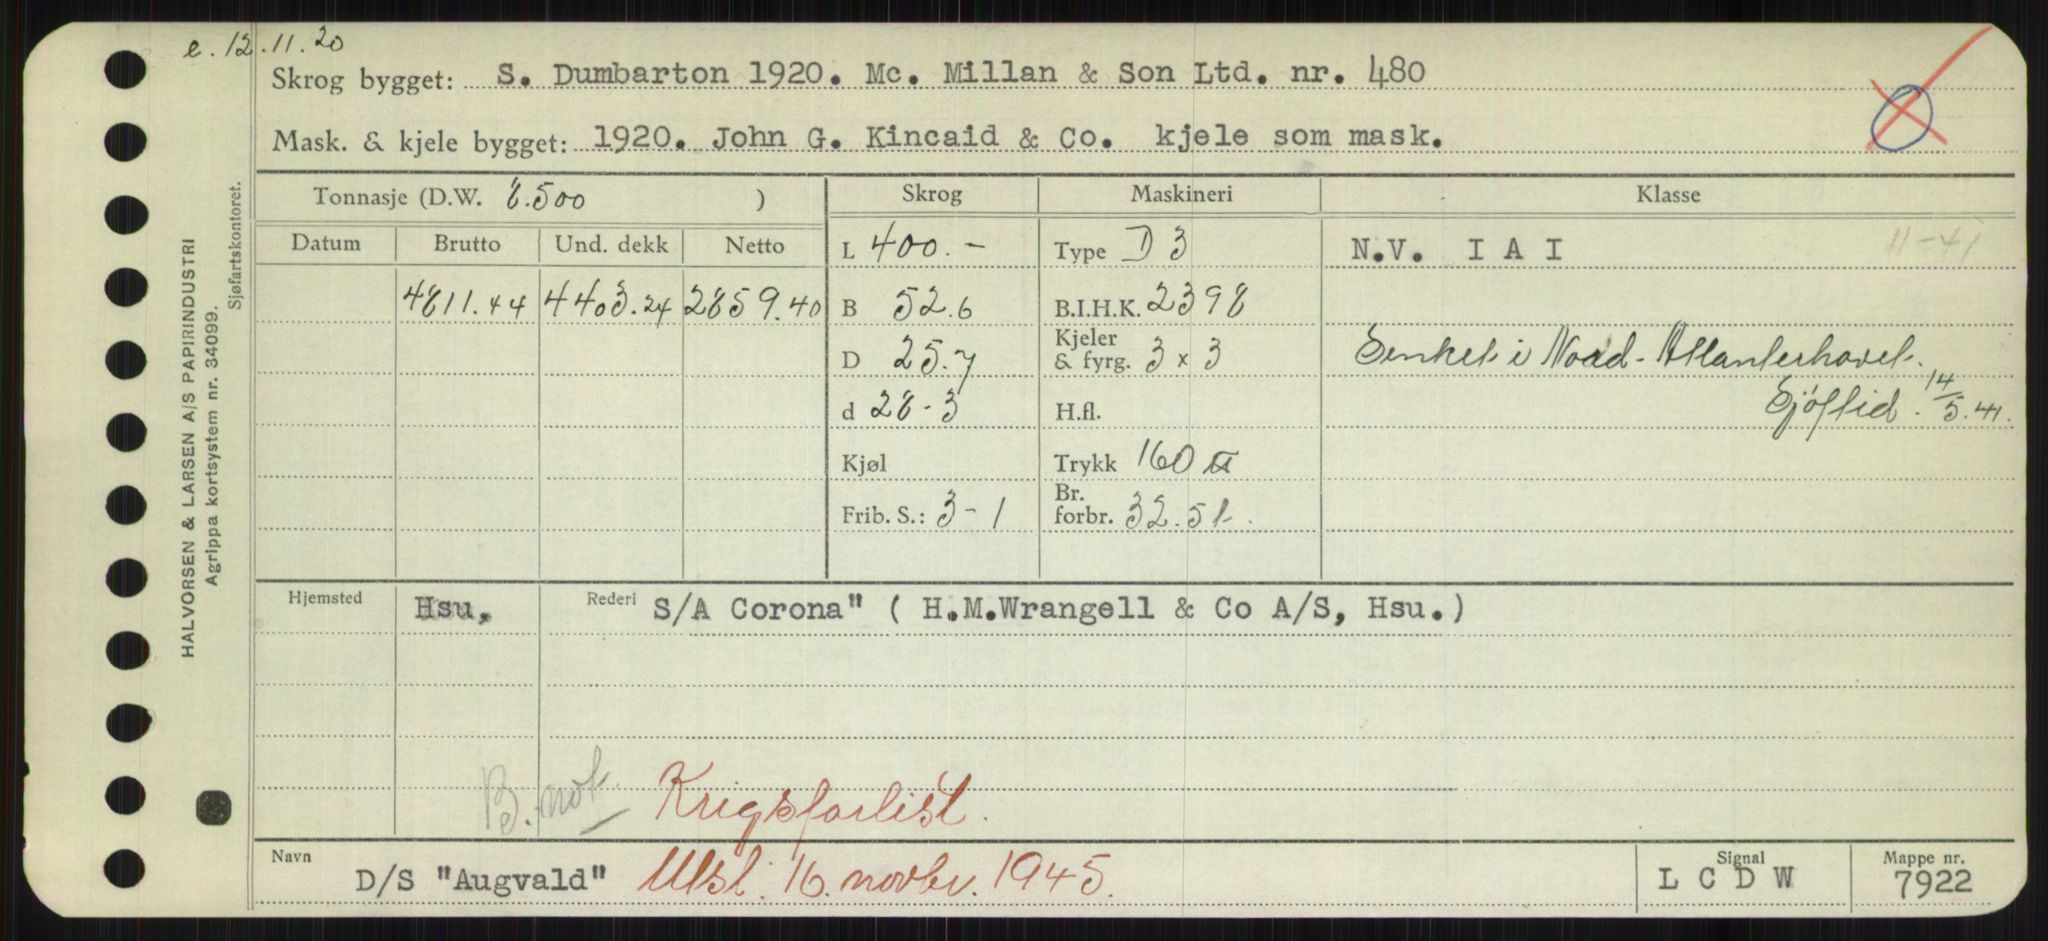 e. 12.11.20
Skrog bygget: S. Dumbarton 1920. Mc. Millan & Son Ltd. nr. 480
Mask. & kjele bygget: 1920. John G. Kincaid & Co. kjele som mask.
HALVORSEN & LARSEN A/S PAPIRINDUSTRI
Agrippa kortsystem nr. 34099.
Sjøfartskontoret.
Tonnasje (D.W. 8.500 ) Skrog Maskineri Klasse
Datum Brutto Und. dekk Netto L 400.- Type D 3 N.V. I A I 11-41
4811.44 4403.24 2859.40 B 52.6 B.I.H.K. 2398
D 25.7 Kjeler & fyrg. 3 x 3 Senket i Nord-Atlanterhavet.
d 28-3 H.fl. Sjöftid. 14/5.41.
Kjøl Trykk 160 lb
Frib. S.: 3-1 Br. forbr. 32.5 t.
Hjemsted Hsu, Rederi S/A Corona" ( H.M.Wrangell & Co A/S, Hsu.)
B. not. Krigsforlist.
Navn D/S "Augvald" Utsl. 16. novbr. 1945. Signal L C D W Mappe nr. 7922